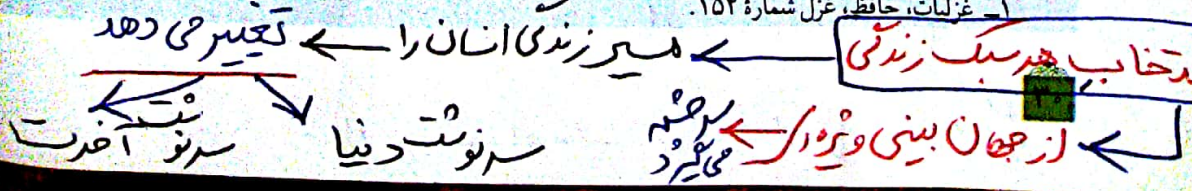 ۱ـ غزلیات، حافظ، غزل شمارهٔ ۱۵۲.
نتخاب هر سبک زندگی ← مسیر زندگی انسان را ← تغییر می دهد
سرنوشت دنیا
سرنوشت آخرت
از جهان بینی ویژه ای ← سرچشمه می گیرد
۳۰